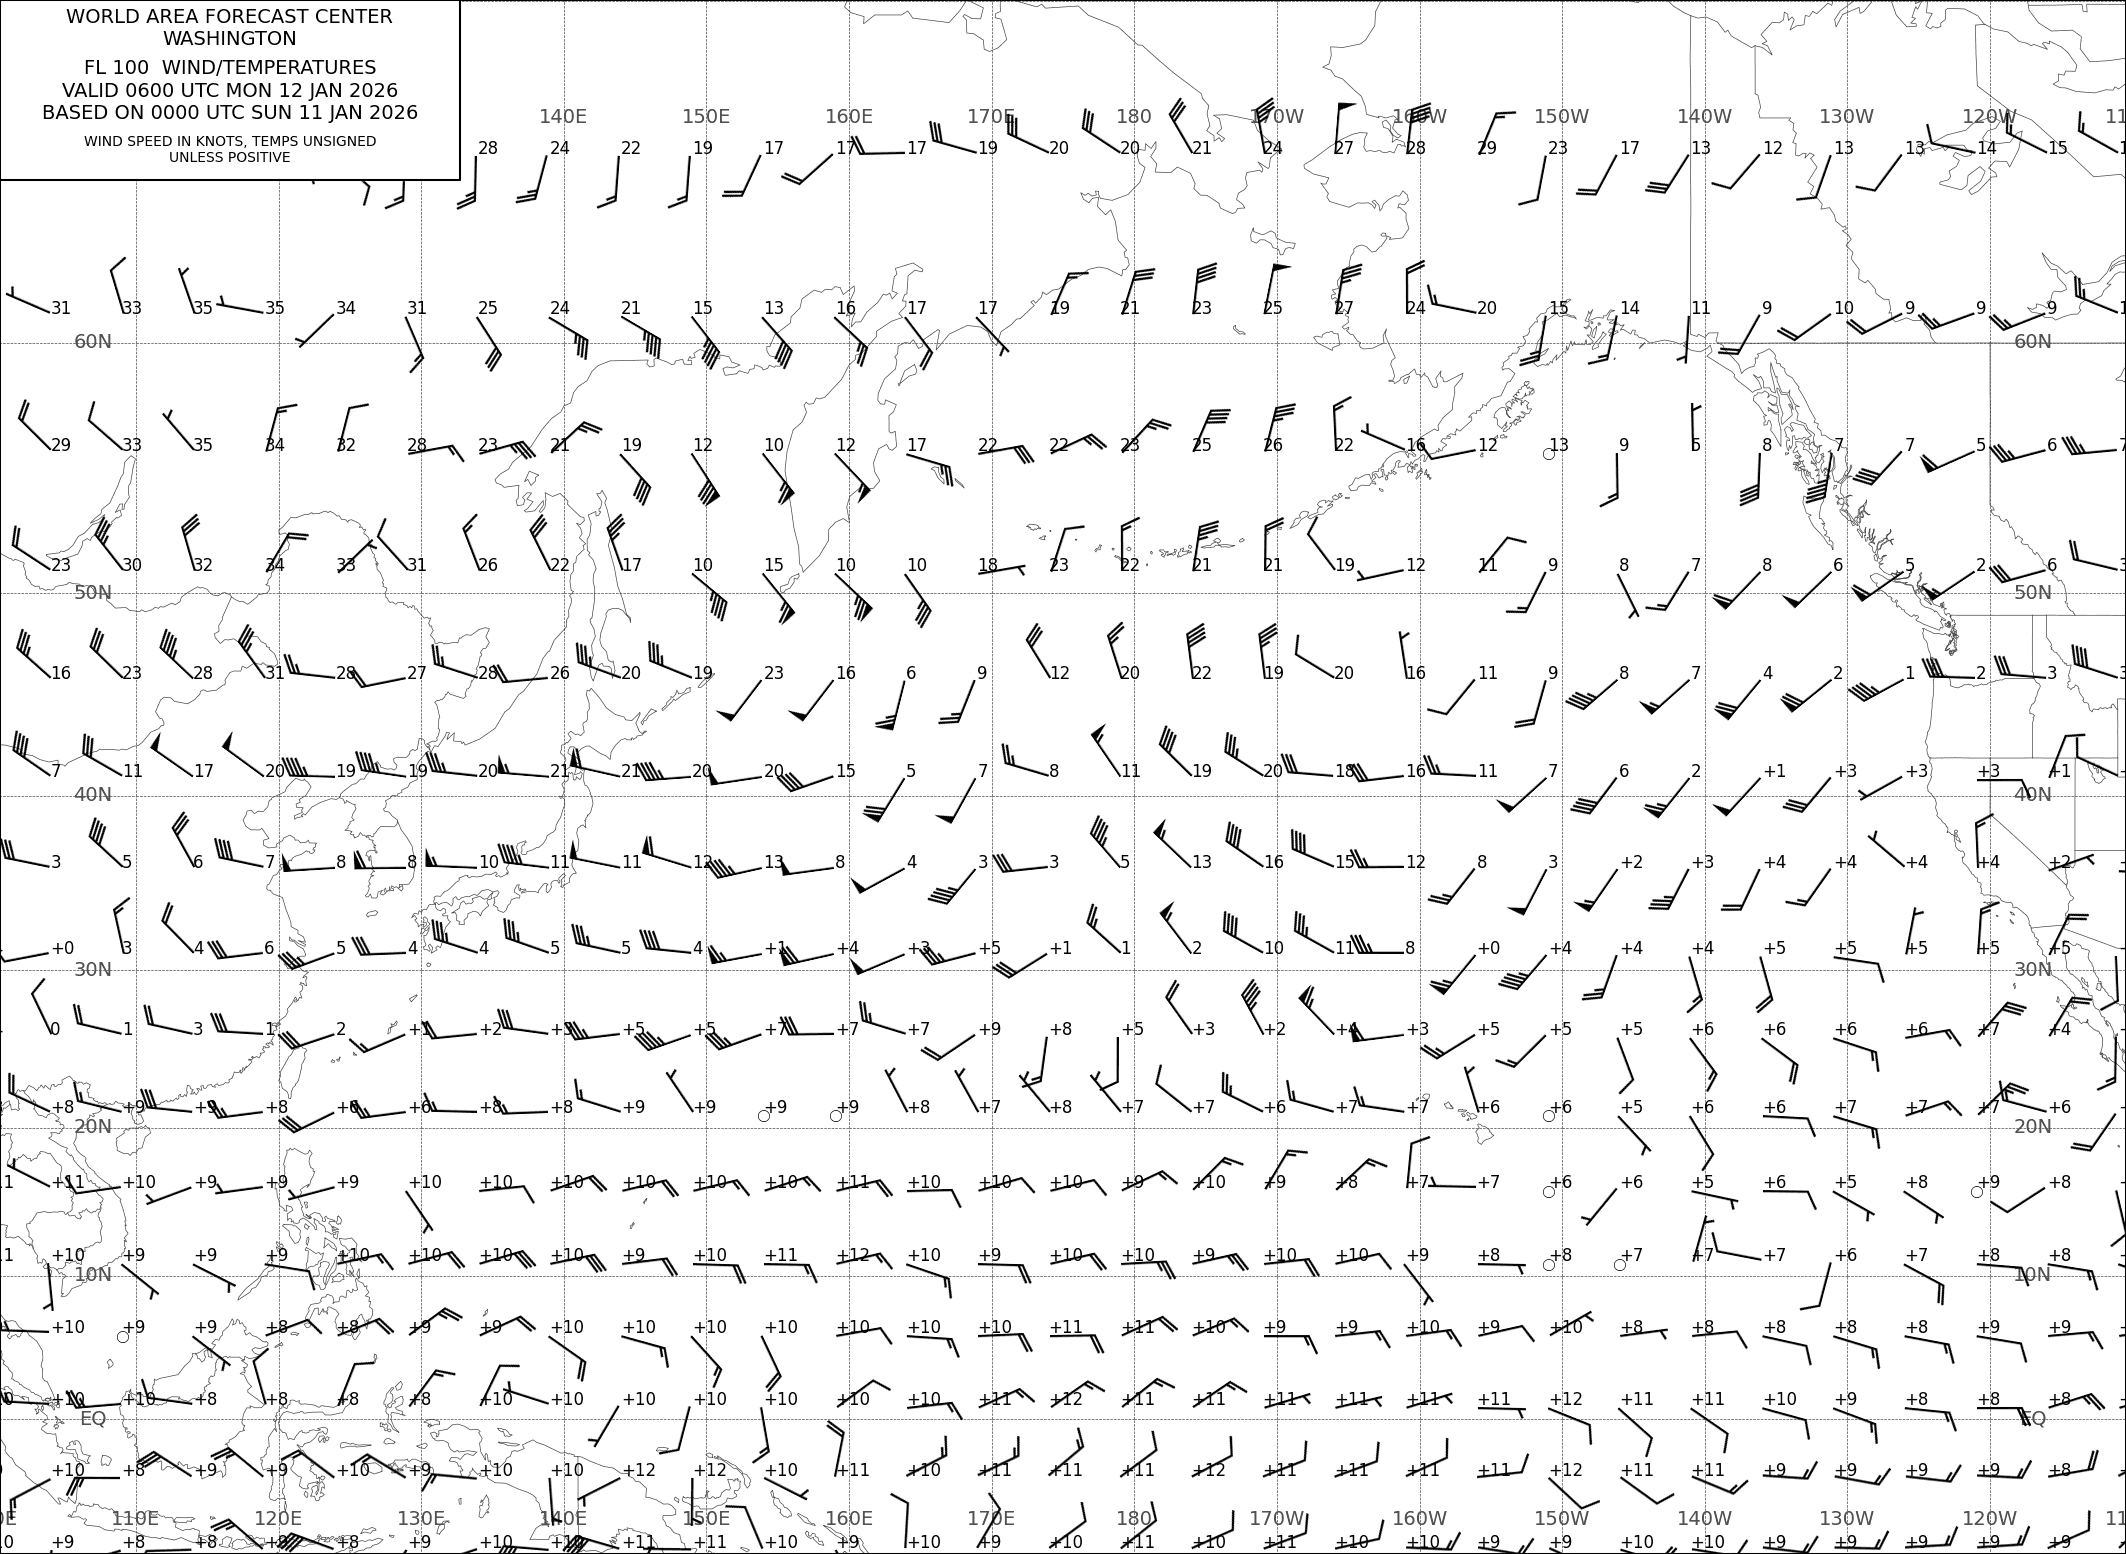 WORLD AREA FORECAST CENTER
WASHINGTON
FL 100 WIND/TEMPERATURES
VALID 0600 UTC MON 12 JAN 2026
BASED ON 0000 UTC SUN 11 JAN 2026
WIND SPEED IN KNOTS, TEMPS UNSIGNED
UNLESS POSITIVE
140E 150E 160E 170E 180 170W 160W 150W 140W 130W 120W
28 24 22 19 17 17 17 19 20 20 21 24 27 28 29 23 17 13 12 13 13 14 15
31 33 35 35 34 31 25 24 21 15 13 16 17 17 19 21 23 25 27 24 20 15 14 11 9 10 9 9 9
60N 60N
29 33 35 34 32 28 23 21 19 12 10 12 17 22 22 23 25 26 22 16 12 13 9 5 8 7 7 5 6 7
23 30 32 34 33 31 26 22 17 10 15 10 10 18 23 22 21 21 19 12 11 9 8 7 8 6 5 2 6 3
50N 50N
16 23 28 31 28 27 28 26 20 19 23 16 6 9 12 20 22 19 20 16 11 9 8 7 4 2 1 2 3 3
7 11 17 20 19 19 20 21 21 20 20 15 5 7 8 11 19 20 18 16 11 7 6 2 +1 +3 +3 +3 +1
40N 40N
3 5 6 7 8 8 10 11 11 12 13 8 4 3 3 5 13 16 15 12 8 3 +2 +3 +4 +4 +4 +4 +2
+0 3 4 6 5 4 4 5 5 4 +1 +4 +3 +5 +1 1 2 10 11 8 +0 +4 +4 +4 +5 +5 +5 +5 +5
30N 30N
0 1 3 1 2 +1 +2 +3 +5 +5 +7 +7 +7 +9 +8 +5 +3 +2 +4 +3 +5 +5 +5 +6 +6 +6 +6 +7 +4
+8 +9 +9 +8 +6 +6 +8 +8 +9 +9 +9 +9 +8 +7 +8 +7 +7 +6 +7 +7 +6 +6 +5 +6 +6 +7 +7 +7 +6
20N 20N
+11 +10 +9 +9 +9 +10 +10 +10 +10 +10 +10 +11 +10 +10 +10 +9 +10 +9 +8 +7 +7 +6 +6 +5 +6 +5 +8 +9 +8
+10 +9 +9 +9 +10 +10 +10 +10 +9 +10 +11 +12 +10 +9 +10 +10 +9 +10 +10 +9 +8 +8 +7 +7 +7 +6 +7 +8 +8
10N 10N
+10 +9 +9 +8 +8 +9 +9 +10 +10 +10 +10 +10 +10 +10 +11 +11 +10 +9 +9 +10 +9 +10 +8 +8 +8 +8 +8 +9 +9
+10 +10 +8 +8 +8 +8 +10 +10 +10 +10 +10 +10 +10 +11 +12 +11 +11 +11 +11 +11 +11 +12 +11 +11 +10 +9 +8 +8 +8
EQ EQ
+10 +8 +9 +9 +10 +9 +10 +10 +12 +12 +10 +11 +10 +11 +11 +11 +12 +11 +11 +11 +11 +12 +11 +11 +9 +9 +9 +9 +8
110E 120E 130E 140E 150E 160E 170E 180 170W 160W 150W 140W 130W 120W
+9 +8 +8 +8 +8 +9 +10 +10 +11 +11 +10 +9 +10 +9 +10 +11 +10 +10 +10 +10 +9 +9 +10 +10 +9 +9 +9 +9 +9